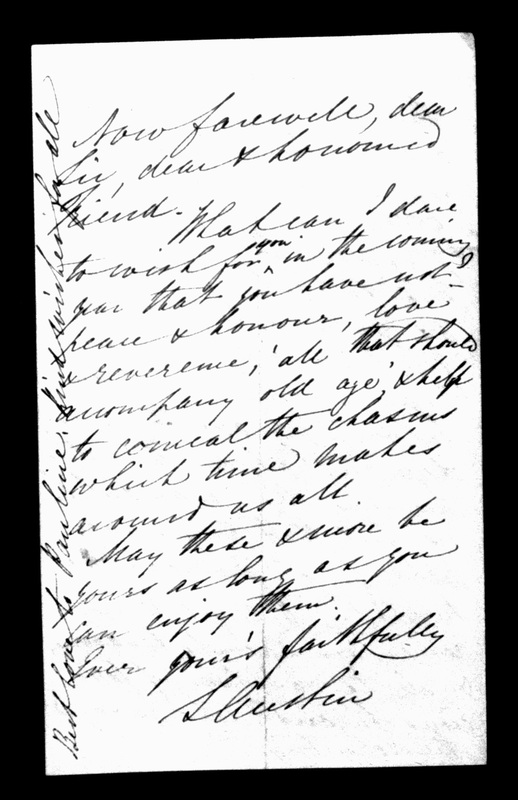 Now farewell, dear
Sir, dear & honoured
friend. –
What can I dare
to wish for you in the coming
year that you have not?
peace & honour, love
& reverence, 'all that should
accompany old age', & help
to conceal the chasms
which time makes
around us all.
May these & more be
yours as long as you
can enjoy them.
Ever your's faithfully
S Austin
Best love to Pauline, kind wishes for all